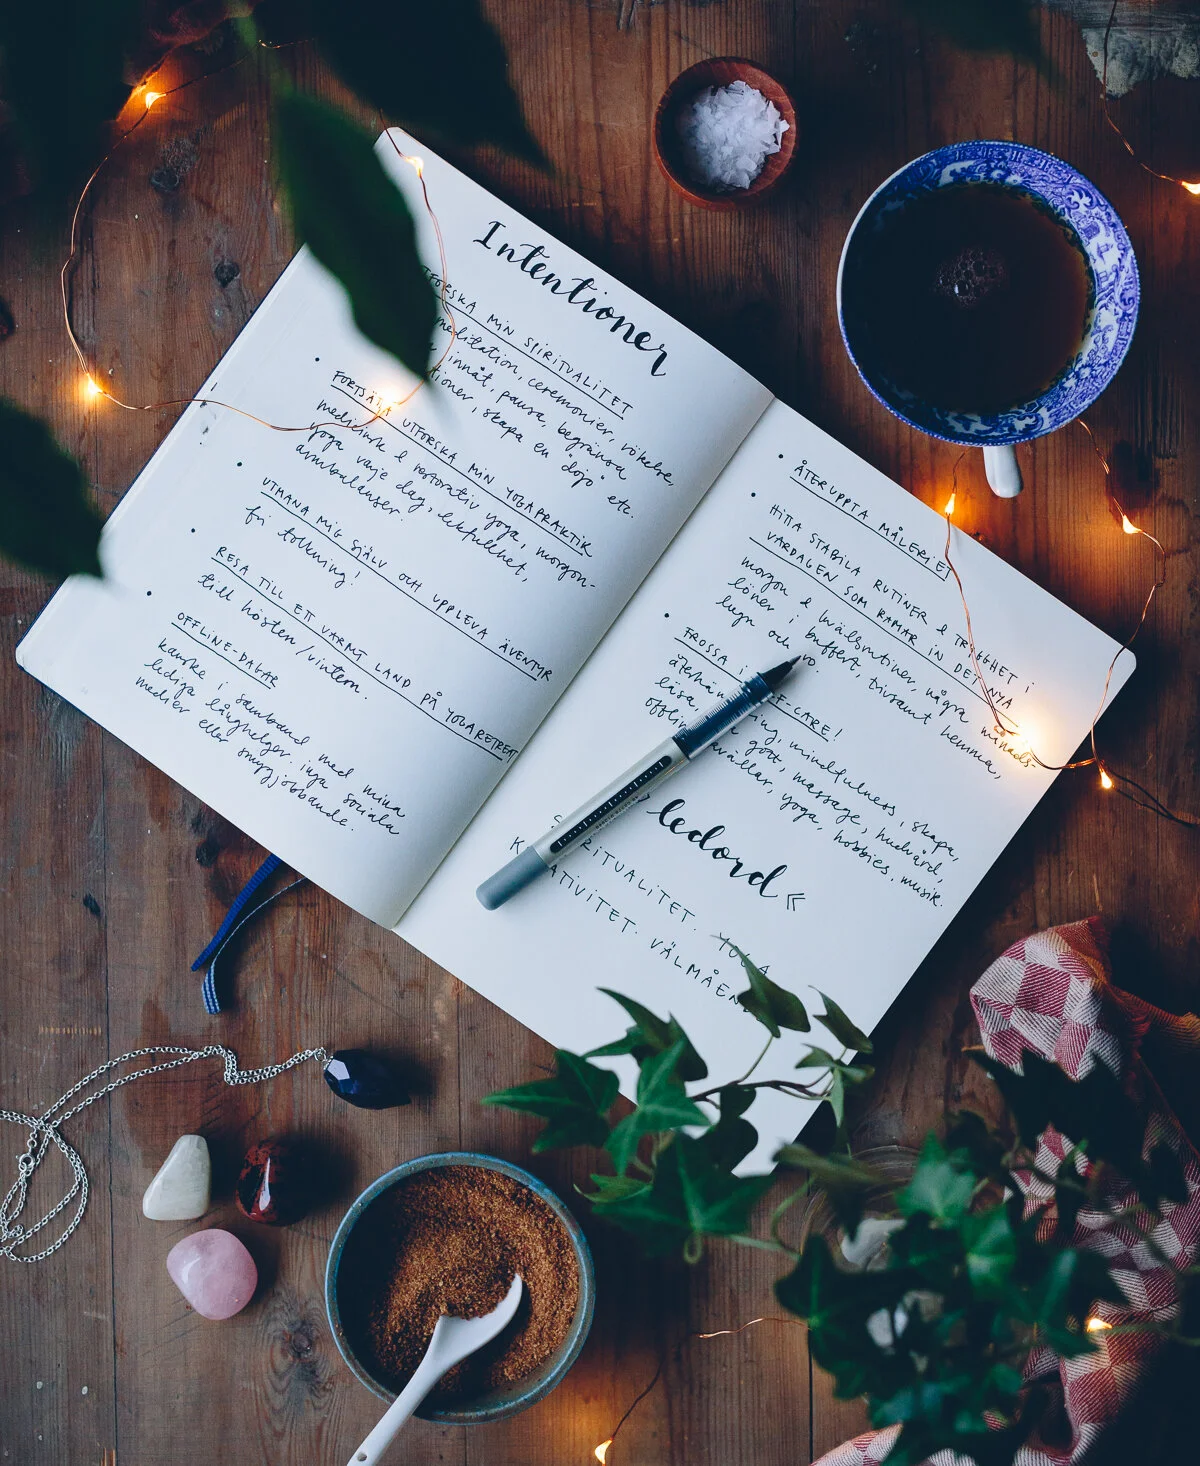 Intentioner
UTFORSKA MIN SPIRITUALITET
meditation, ceremonier, rökelse,
innåt, pausa, begränsa
skapa en "dojo" etc.
FORTSÄTT UTFORSKA MIN YOGAPRAKTIK
medicinsk & restorativ yoga, morgon-
yoga varje dag, lekfullhet,
armbalanser.
• UTMANA MIG SJÄLV OCH UPPLEVA ÄVENTYR
fri tolkning!
• RESA TILL ETT VARMT LAND PÅ YOGARETREAT
till hösten/vintern.
• OFFLINE-DAGAR
kanske i samband med mina
lediga långhelger. inga sociala
medier eller smygjobbande.
• ÅTERUPPTA MÅLERIET
• HITTA STABILA RUTINER & TRYGGHET I
VARDAGEN SOM RAMAR IN DET NYA
morgon & kvällsrutiner, några månads-
löner i buffert, tivsamt hemma,
lugn och ro.
• FROSSA I SELF-CARE!
mindfulness, skapa,
läsa, gott, massage, hudvård,
kvällar, yoga, hobbies, musik.
ledord «
SPIRITUALITET. YOGA
KREATIVITET. VÄLMÅENDE